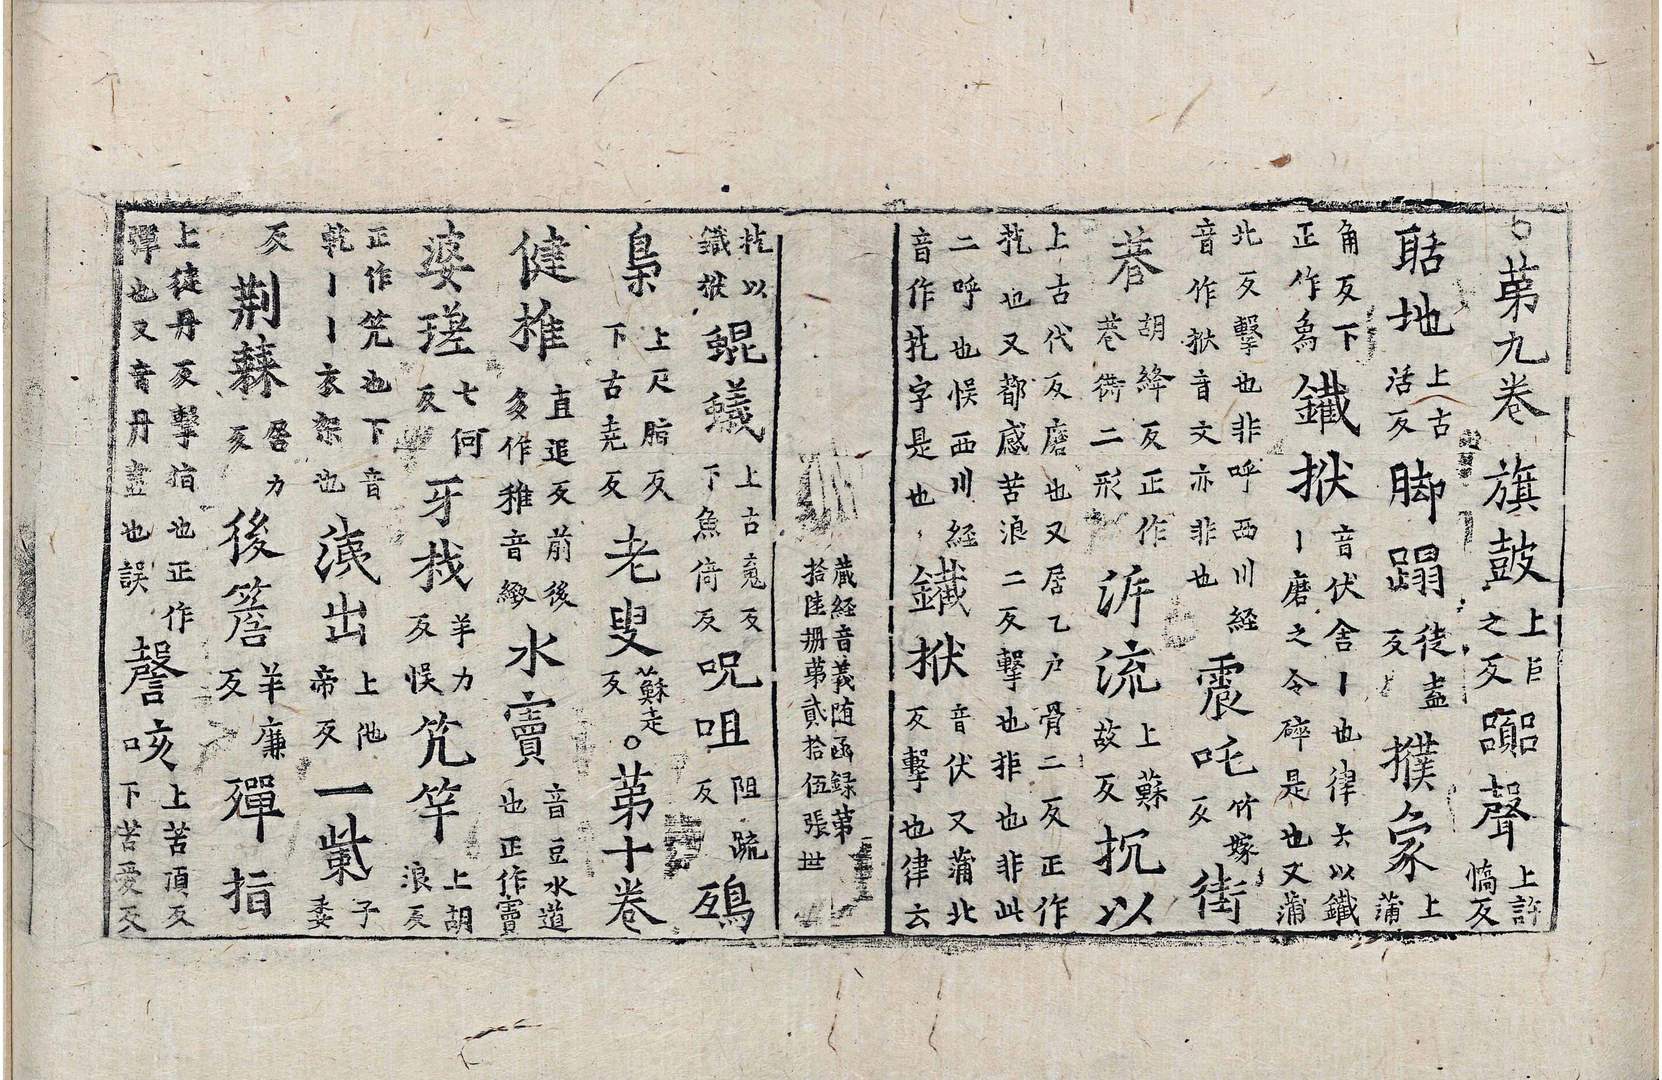 ○第九卷 旗鼓 上巨之反 䠒聲 上許憍反
聒地 上古活反 脚蹋 徒盍反 撲象 上蒲
角反下正作為 鐵㧊 音伏舍丨也律云以鐵丨磨之令碎是也又蒲
北反擊也非呼西川経音作㧊音文亦非也 震吒 竹嫁反 街
巷 胡絳反正作巷衖二形 泝流 上蘇故反 扢以
上古代反磨也又居乙户骨二反正作扢也又都感苦浪二反擊也非也非此
二呼也悮西川経音作扢字是也 鐵㧊 音伏又蒲北反擊也律云
藏経音義随函録第拾陸册第貳拾伍張 世
扢以鐵㧊 蜫蟻 上古䰟反下魚倚反 呪咀 阻䟽反 鵄
梟 上尺脂反下古尭反 老叟 蘇走反 ○第十卷
健椎 直追反前後多作稚音緻 水竇 音豆水道也正作竇
婆瑳 七何反 牙杙 羊力反悮 笐竿 上胡浪反
正作笐也下音乹丨丨亥架也 洟出 上他帝反 一紫 子委
反 荆蕀 居力反 後簷 羊廉反 彈指
上徒丹反擊指也正作彈也又音丹盡也誤 謦咳 上苦頂反下苦愛反